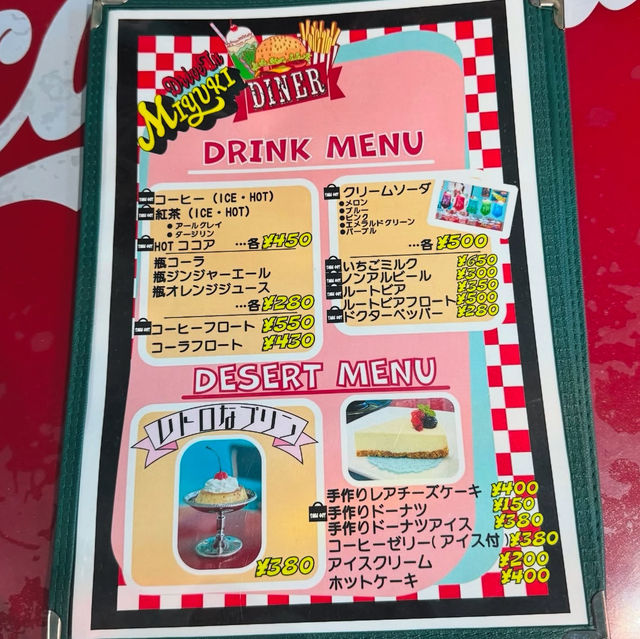 Drive In
MIYUKI
DINER
DRINK MENU
コーヒー (ICE・HOT)
紅茶 (ICE・HOT)
●アールグレイ
●ダージリン
HOT ココア …各¥450
瓶コーラ
瓶ジンジャーエール
瓶オレンジジュース
…各¥280
コーヒーフロート ¥550
コーラフロート ¥430
クリームソーダ
●メロン
●ブルー
●ピンク
●エメラルドグリーン
●パープル
…各¥500
いちごミルク ¥650
ノンアルビール ¥300
ルートビア ¥350
ルートビアフロート ¥500
ドクターペッパー ¥280
DESERT MENU
レトロなプリン
¥380
手作りレアチーズケーキ ¥400
TAKE OUT 手作りドーナツ ¥150
手作りドーナツアイス ¥380
コーヒーゼリー(アイス付)¥380
アイスクリーム ¥200
ホットケーキ ¥400